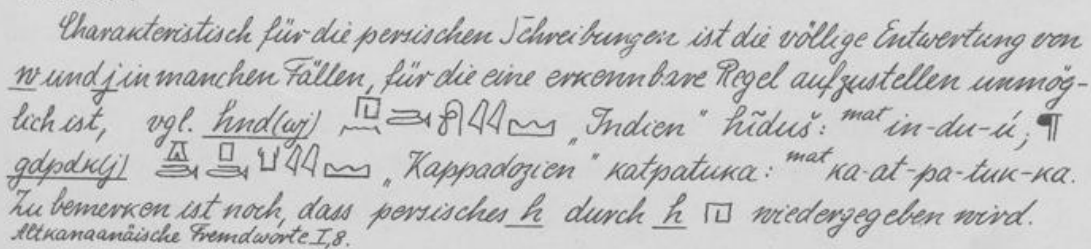 Charakteristisch für die persischen Schreibungen ist die völlige Entwertung von
w und j in manchen Fällen, für die eine erkennbare Regel aufzustellen unmög-
lich ist, vgl. hnd(wj) „Indien“ hĩduš: mat in-du-ú; ¶
gdpdk(j) „Kappadozien“ katpatuka: mat ka-at-pa-tuk-ka.
Zu bemerken ist noch, dass persisches h durch h 𓉔 wiedergegeben wird.
Altkanaanäische Fremdworte I,8.